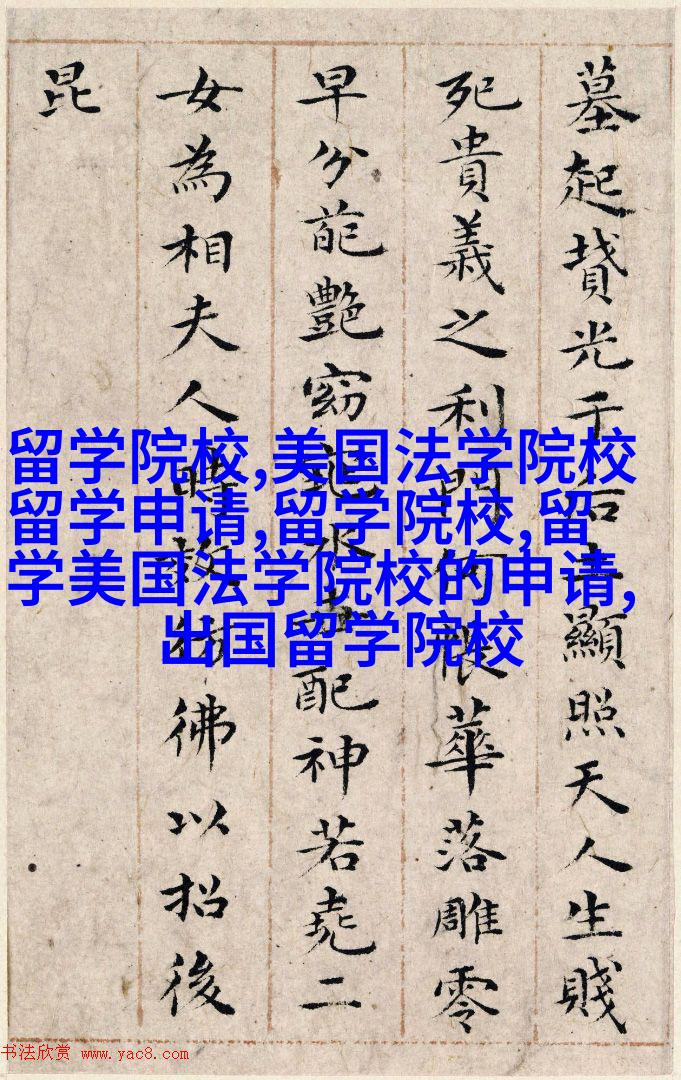 墓起墳光于后土顯照天人生賤
死貴義之利門何悵華落雕零
早分葩艷窈窕永世配神若堯二
女為相夫人時效彷彿以招後
昆
留学院校,美国法学院校
留学申请,留学院校,留
学美国法学院校的申请,
出国留学院校
书法欣赏 www.yac8.com